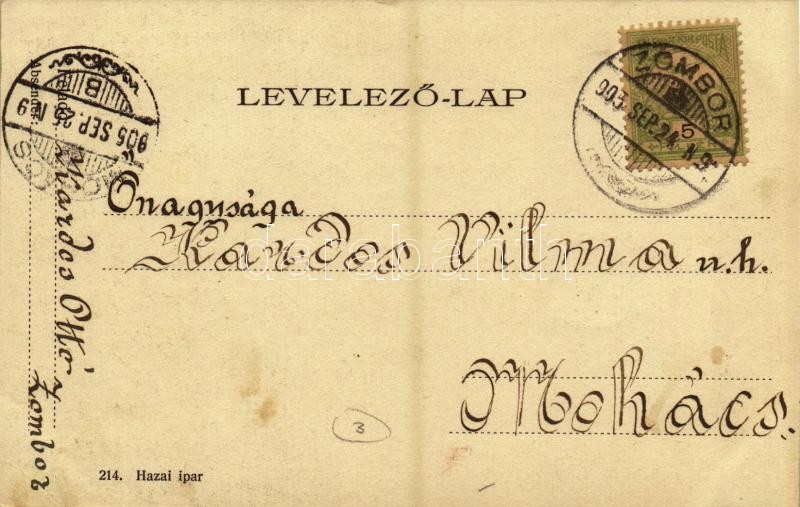 LEVELEZŐ-LAP
ZOMBOR
905 SEP. 24 N 9
5
905 SEP. 25 N 9
B
Feladó
Absender:
Kardos Ottó
Zombor
Onagysága
Kardos Vilma u.h.
Mohács.
3
214. Hazai ipar
darabanth